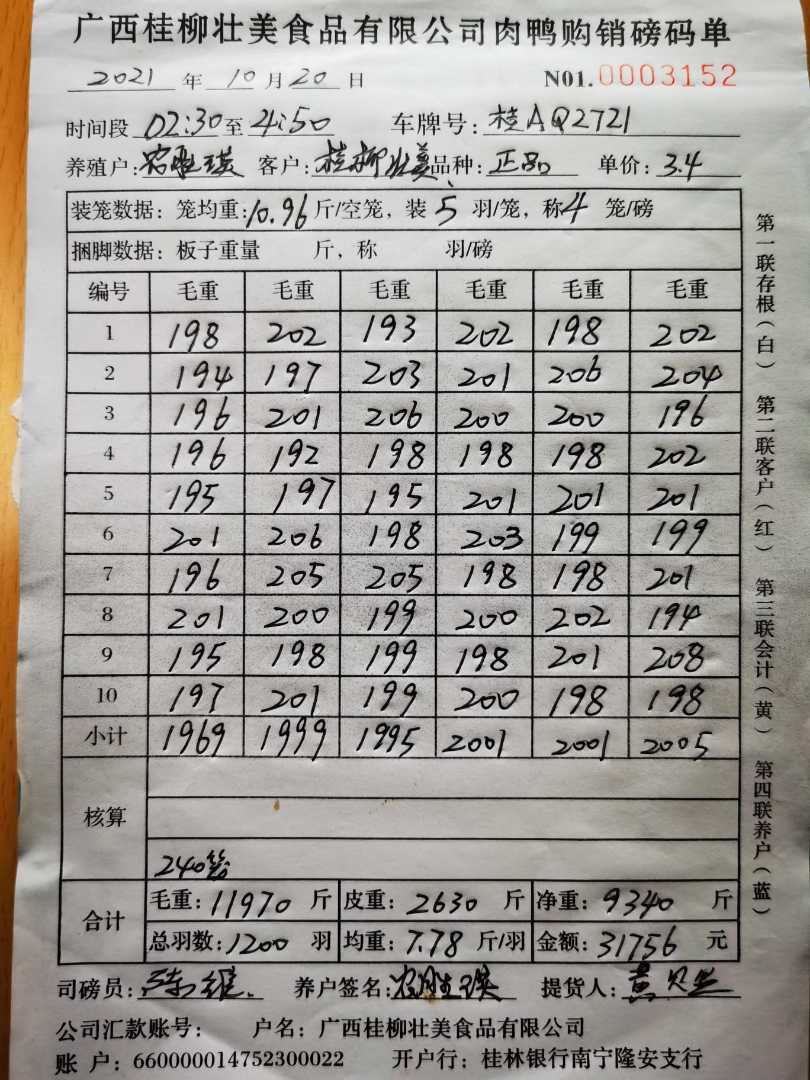 广西桂柳壮美食品有限公司肉鸭购销磅码单
2021 年 10 月 20 日 N01.0003152
时间段 02:30 至 4:50 车牌号: 桂AQ2721
养殖户: 客户: 桂柳壮美 品种: 正品 单价: 3.4
装笼数据: 笼均重: 10.96 斤/空笼, 装 5 羽/笼, 称 4 笼/磅
捆脚数据: 板子重量 斤, 称 羽/磅
编号 毛重 毛重 毛重 毛重 毛重 毛重
1 198 202 193 202 198 202
2 194 197 203 201 206 204
3 196 201 206 200 200 196
4 196 192 198 198 198 202
5 195 197 195 201 201 201
6 201 206 198 203 199 199
7 196 205 205 198 198 201
8 201 200 199 200 202 194
9 195 198 199 198 201 208
10 197 201 199 200 198 198
小计 1969 1999 1995 2001 2001 2005
核算
240笼
合计
毛重: 11970 斤 皮重: 2630 斤 净重: 9340 斤
总羽数: 1200 羽 均重: 7.78 斤/羽 金额: 31756 元
司磅员: 养户签名: 提货人: 黄
公司汇款账号: 户名: 广西桂柳壮美食品有限公司
账 户: 660000014752300022 开户行: 桂林银行南宁隆安支行
第一联存根(白) 第二联客户(红) 第三联会计(黄) 第四联养户(蓝)